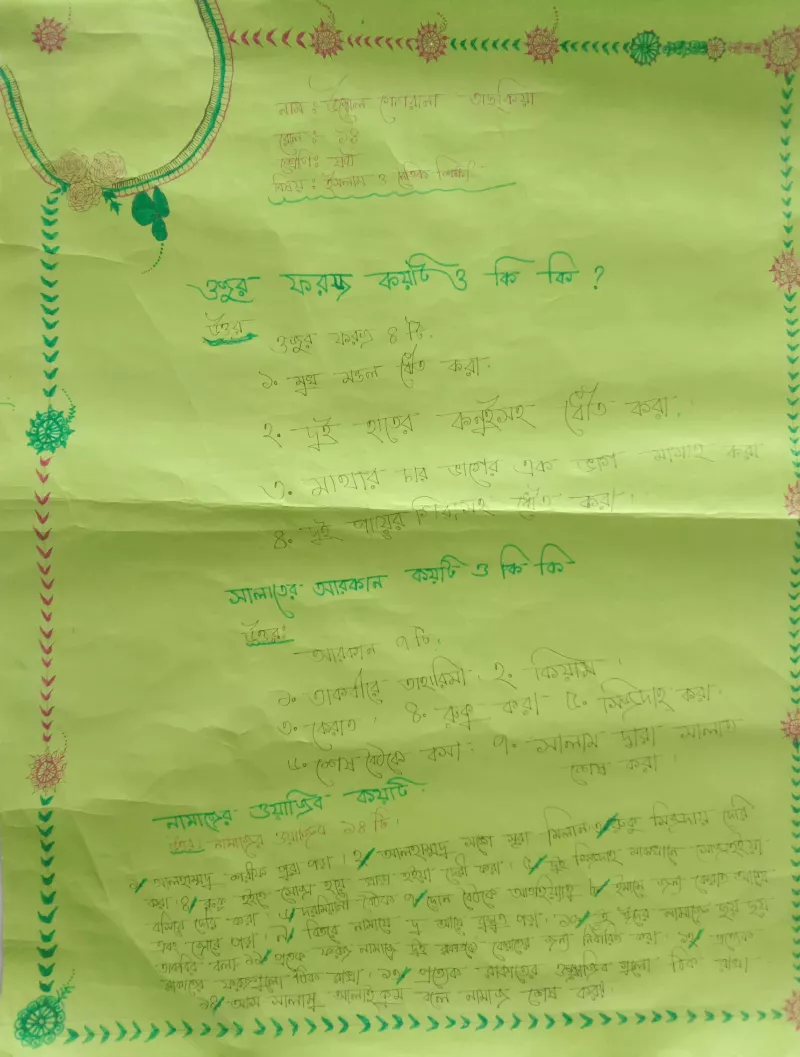 নাম : উম্মে তাবাসসুম
রোল : ১৪
শ্রেণি : ষষ্ঠ
বিষয় : ইসলাম ও নৈতিক শিক্ষা
ওজুর ফরজ কয়টি ও কি কি ?
উত্তর
ওজুর ফরজ ৪ টি.
১. মুখ মন্ডল ধৌত করা.
২. দুই হাতের কনুইসহ ধৌত করা.
৩. মাথার চার ভাগের এক ভাগ মাসাহ করা
৪. দুই পায়ের গিরাসহ ধৌত করা.
সালাতের আরকান কয়টি ও কি কি
উত্তর:
আরকান ৭ টি.
১. তাকবীরে তাহারিমা. ২. কিয়াম.
৩. কেরাত. ৪. রুকু করা ৫. সিজদাহ করা.
৬. শেষ বৈঠকে বসা. ৭. সালাম দ্বারা সালাত
শেষ করা.
নামাজের ওয়াজিব কয়টি.
উত্তর: নামাজের ওয়াজিব ১৪ টি.
১/ আলহামদু শরীফ পুরা পড়া. ২/ আলহামদু সাথে সুরা মিলান ৩/ রুকু সিজদায় দেরি
করা. ৪/ রুকু হইতে সোজা হয়ে খাড়া হইয়া দেরী করা. ৫/ দুই সিজদাহ মাঝখানে সোজাহইয়া
বসিয়া দেরি করা. ৬/ দরমিয়ানী বৈঠক ৭/ দোন বৈঠকে আত্তাহিয়াতু ৮/ ইমামে জন্য কেরাত আস্তে
এবং জোরে পড়া. ৯/ বিতরে নামাযে দু আয়ে কুনুত পড়া. ১০/ দু ঈদের নামাজে ছয় ছয়
তাকবির বলা ১১/ প্রত্যেক ফরজ নামাজে দুই রাকাতে কেরাতের জন্য নির্ধারিত করা. ১২/ প্রত্যেক
রাকাতের ফরজগুলো ঠিক রাখা. ১৩/ প্রত্যেক রাকাতের ওয়াজিব গুলো ঠিক রাখা
১৪/ আস সালামু আলাইকুম বলে নামাজ শেষ করা.